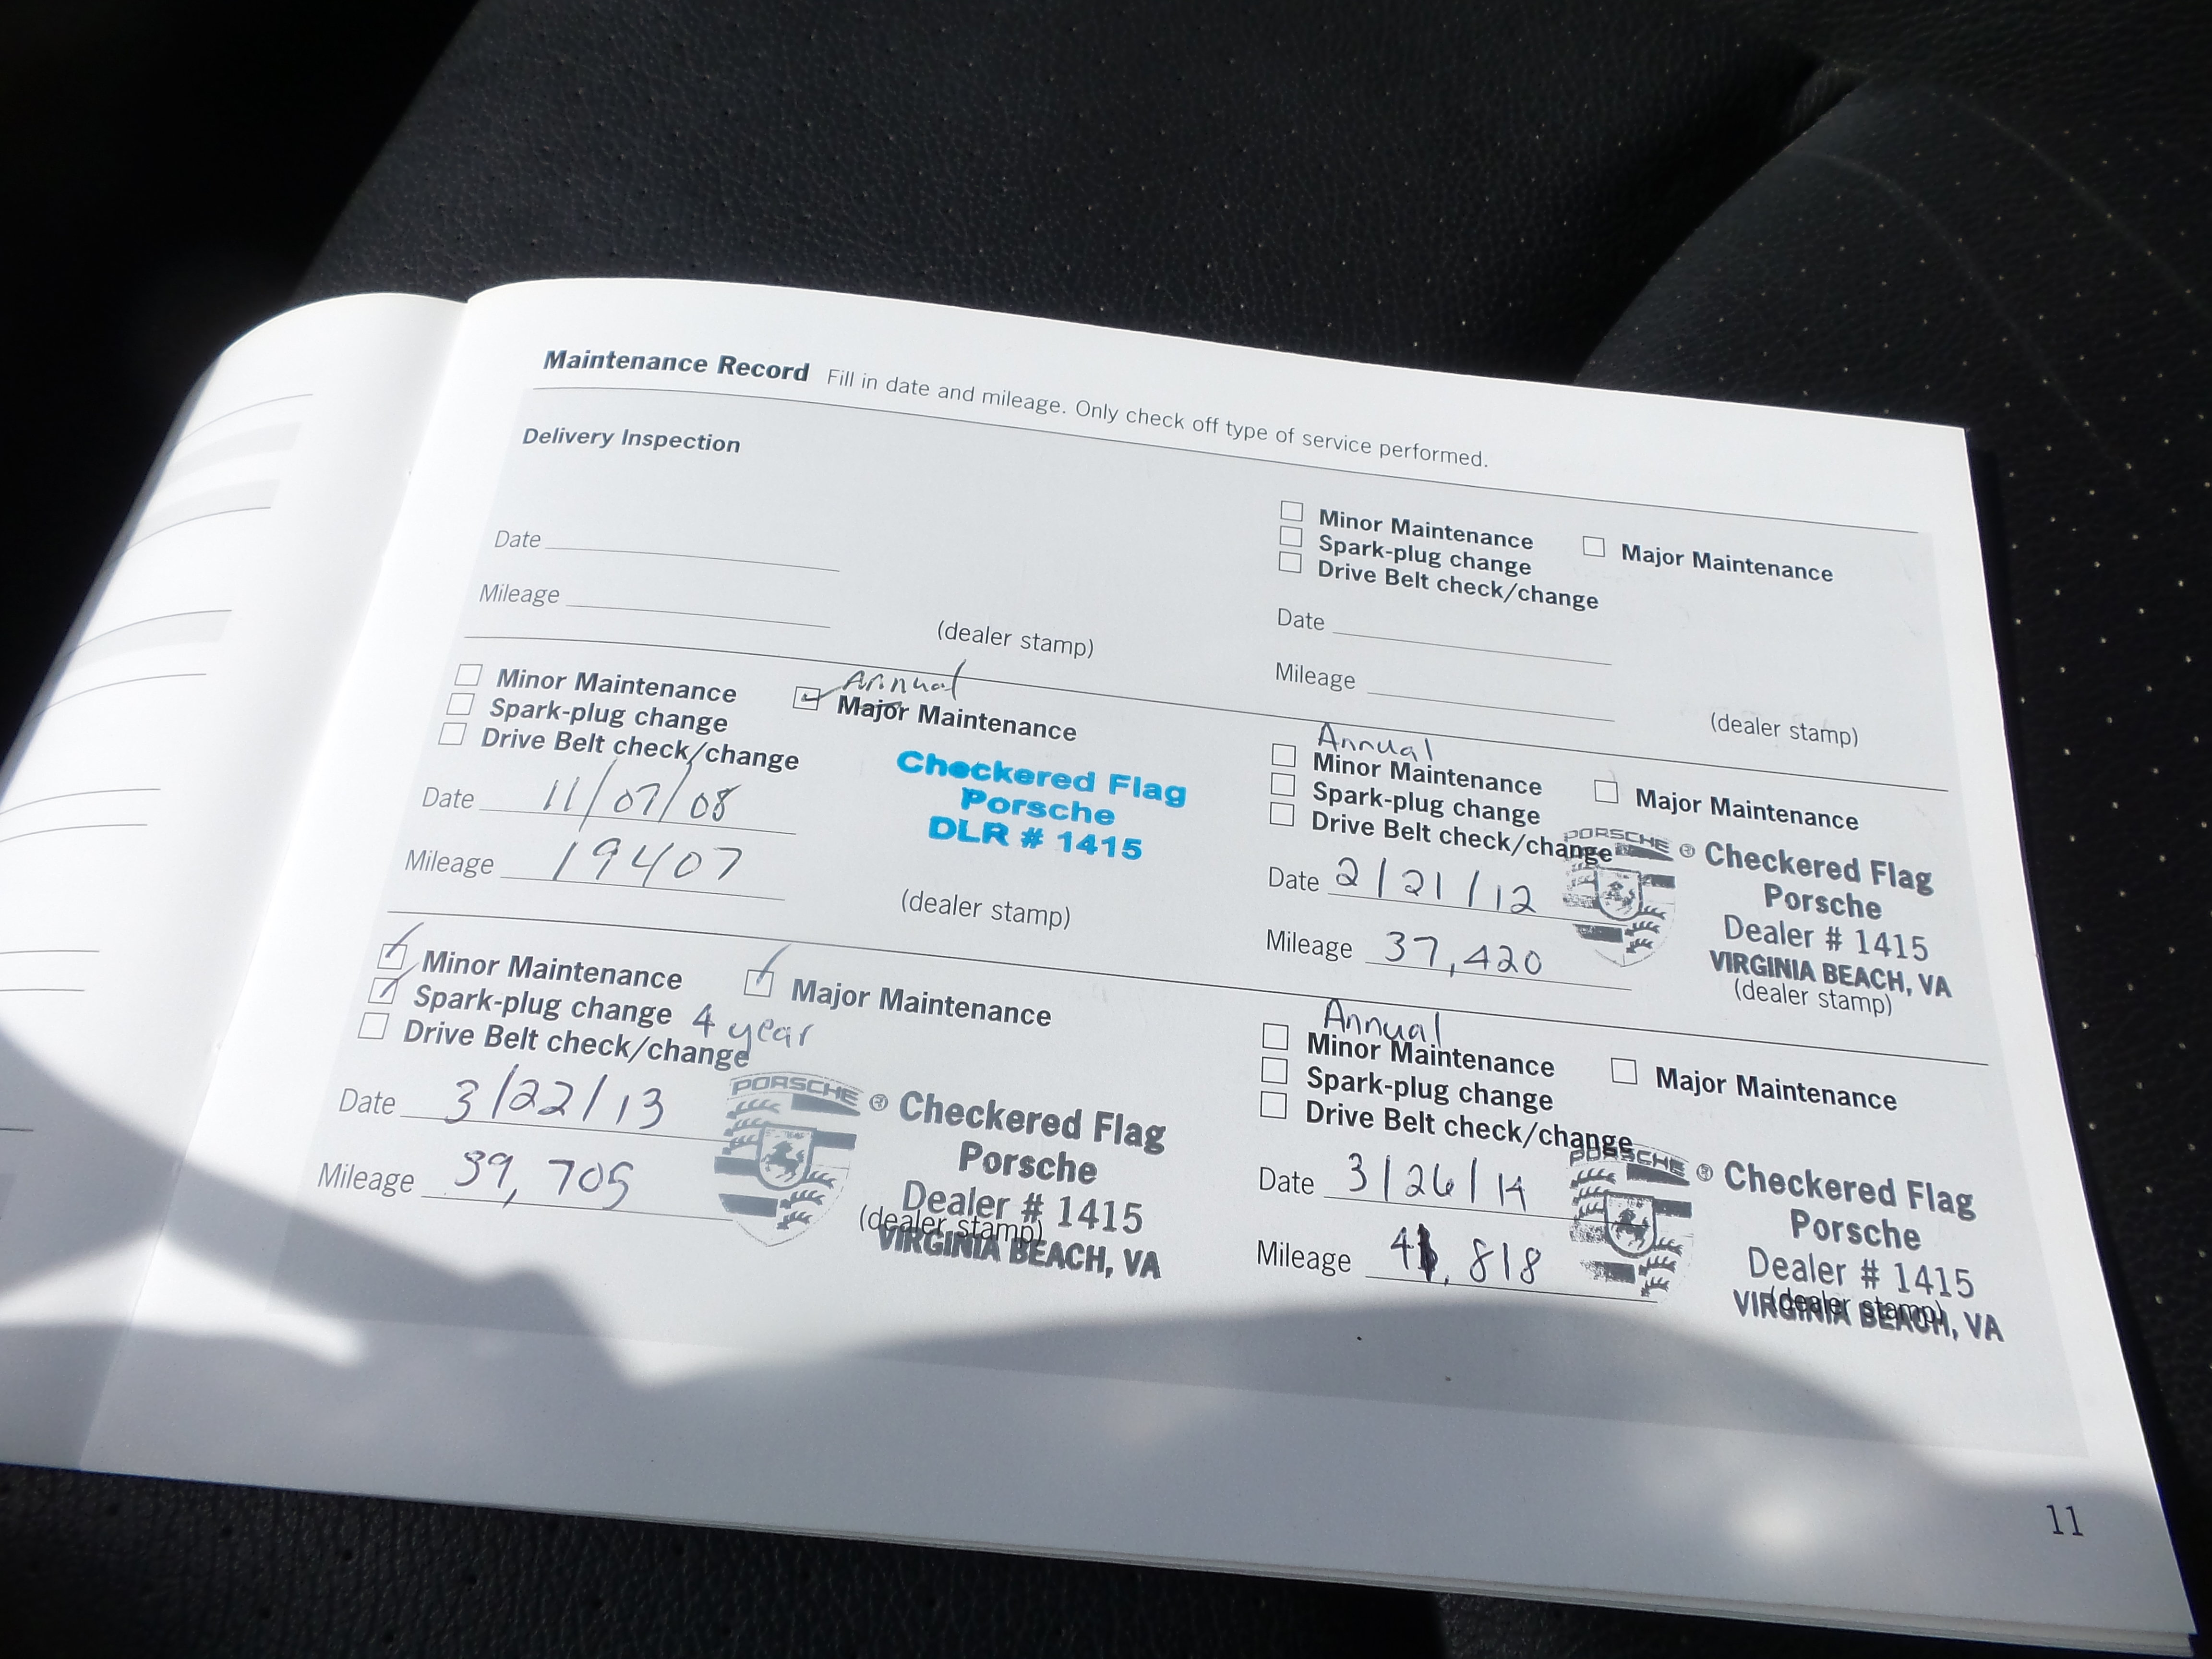 Maintenance Record Fill in date and mileage. Only check off type of service performed.
Delivery Inspection
Date
Mileage
(dealer stamp)
Minor Maintenance
Major Maintenance
Spark-plug change
Drive Belt check/change
Date
Mileage
(dealer stamp)
Annual
Minor Maintenance
Major Maintenance
Spark-plug change
Drive Belt check/change
Date 11/07/08
Mileage 19407
Checkered Flag
Porsche
DLR # 1415
(dealer stamp)
Annual
Minor Maintenance
Major Maintenance
Spark-plug change
Drive Belt check/change
Date 2/21/12
Mileage 37,420
PORSCHE ®
Checkered Flag
Porsche
Dealer # 1415
VIRGINIA BEACH, VA
(dealer stamp)
Minor Maintenance
Major Maintenance
Spark-plug change 4 year
Drive Belt check/change
Date 3/22/13
Mileage 39,705
PORSCHE ®
Checkered Flag
Porsche
Dealer # 1415
(dealer stamp)
VIRGINIA BEACH, VA
Annual
Minor Maintenance
Major Maintenance
Spark-plug change
Drive Belt check/change
Date 3/26/14
Mileage 41,818
PORSCHE ®
Checkered Flag
Porsche
Dealer # 1415
(dealer stamp)
VIRGINIA BEACH, VA
11